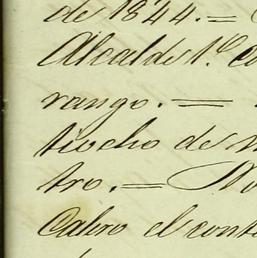 de 1844.=
Alcalde 1.º co
rango.=
tiocho de m
tro.=No
Cabro el cont